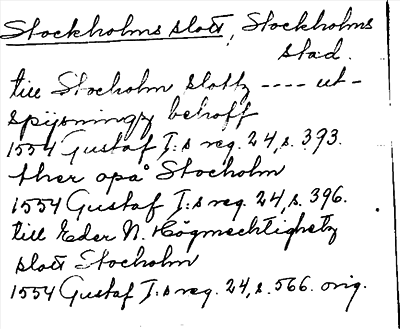 Stockholms slott, Stockholms
stad.
till Stocholm slottz ---- ut-
spijsningz behoff
1554 Gustaf I:s reg. 24, s. 393.
ther opå Stocholm
1554 Gustaf I:s reg. 24, s. 396.
till Eder N. Högmechtighetz
slott Stocholm
1554 Gustaf I:s reg. 24, s. 566. orig.